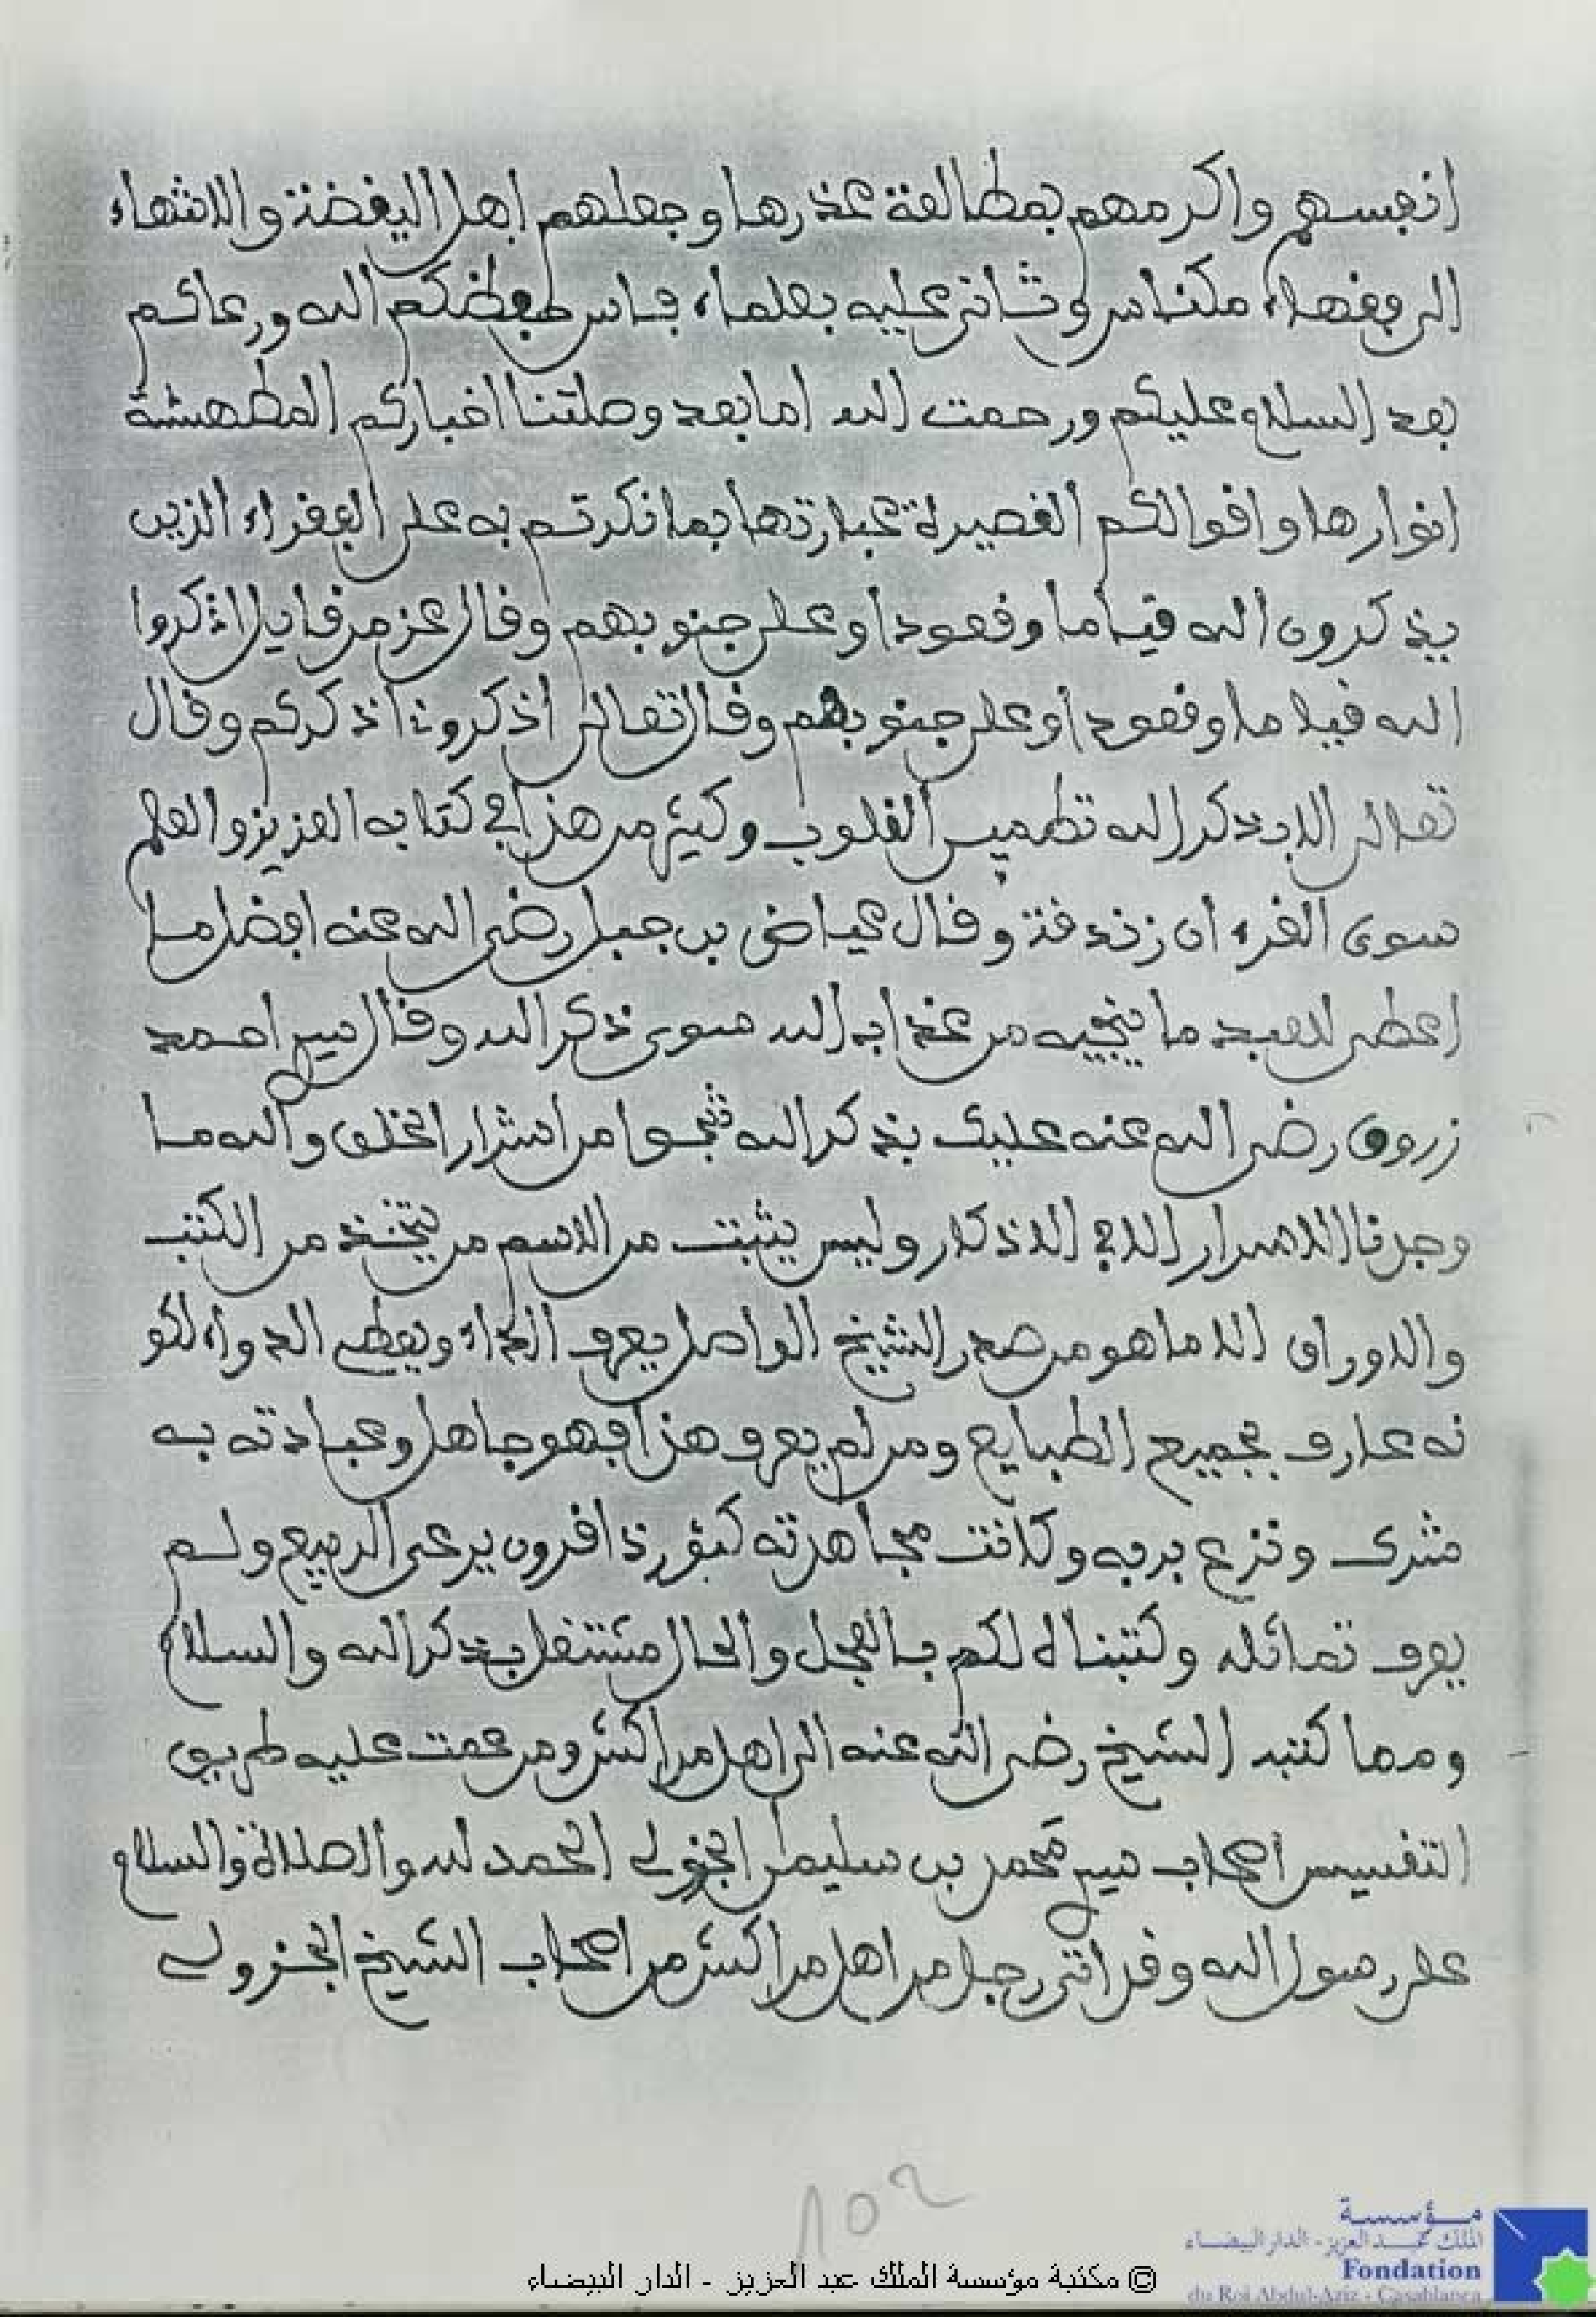 انفسهم واكرمهم بمطالعة عذرها وجعلهم اهل اليفضة والانتهاء
الى فقهاء مكناس وثانى عليه بعلماء فاس حفظكم الله ورعاكم
بعد السلام عليكم ورحمت الله اما بعد وصلتنا اخباركم المطهشة
انوارها واقوالكم القصيرة عبارتها بما نكرتم به على الفقراء الذين
يذكرون الله قياما وقعودا وعلى جنوبهم وقال عز من قايل اذكروا
الله قياما وقعودا وعلى جنوبهم وقال تعالى اذكرونى اذكركم وقال
تعالى الا بذكر الله تطمين القلوب وكثير من هذا في كتابه العزيز والعلم
سوى القرءان زندقة وقال عياض بن جبل رضى الله عنه افضل ما
اعطى للعبد ما ينجيه من عذاب الله سوى ذكر الله وقال سيدي احمد
زروق رضى الله عنه عليك بذكر الله تنجوا من اشرار الخلق والله ما
وجدنا الاسرار الا في الاذكار وليس يثبت من الاسم من يتخذ من الكتب
والاوراق الا ما هو من صدر الشيخ الواصل يعرف الداء ويعطى الدواء لكو
نه عارف بجميع الطبايع ومن لم يعرف هذا فهو جاهل وعبادته به
شرك ونزع بربه وكانت مجاهدته كثور ذا قرون يرعى الربيع ولم
يعرف تمائله وكتبناه لكم بالعجل والحال مشتغل بذكر الله والسلام
ومما كتبه الشيخ رضى الله عنه الى اهل مراكش ومن عمت عليه طريق
التفسيس اصحاب سيدي محمد بن سليمان الجزولي الحمد لله والصلاة والسلام
على رسول الله وقد اتى رجل من اهل مراكش من اصحاب الشيخ الجزولي
١٥٢
© مكتبة مؤسسة الملك عبد العزيز - الدار البيضاء
مؤسسة
الملك عبد العزيز - الدار البيضاء
Fondation
du Roi Abdul-Aziz - Casablanca